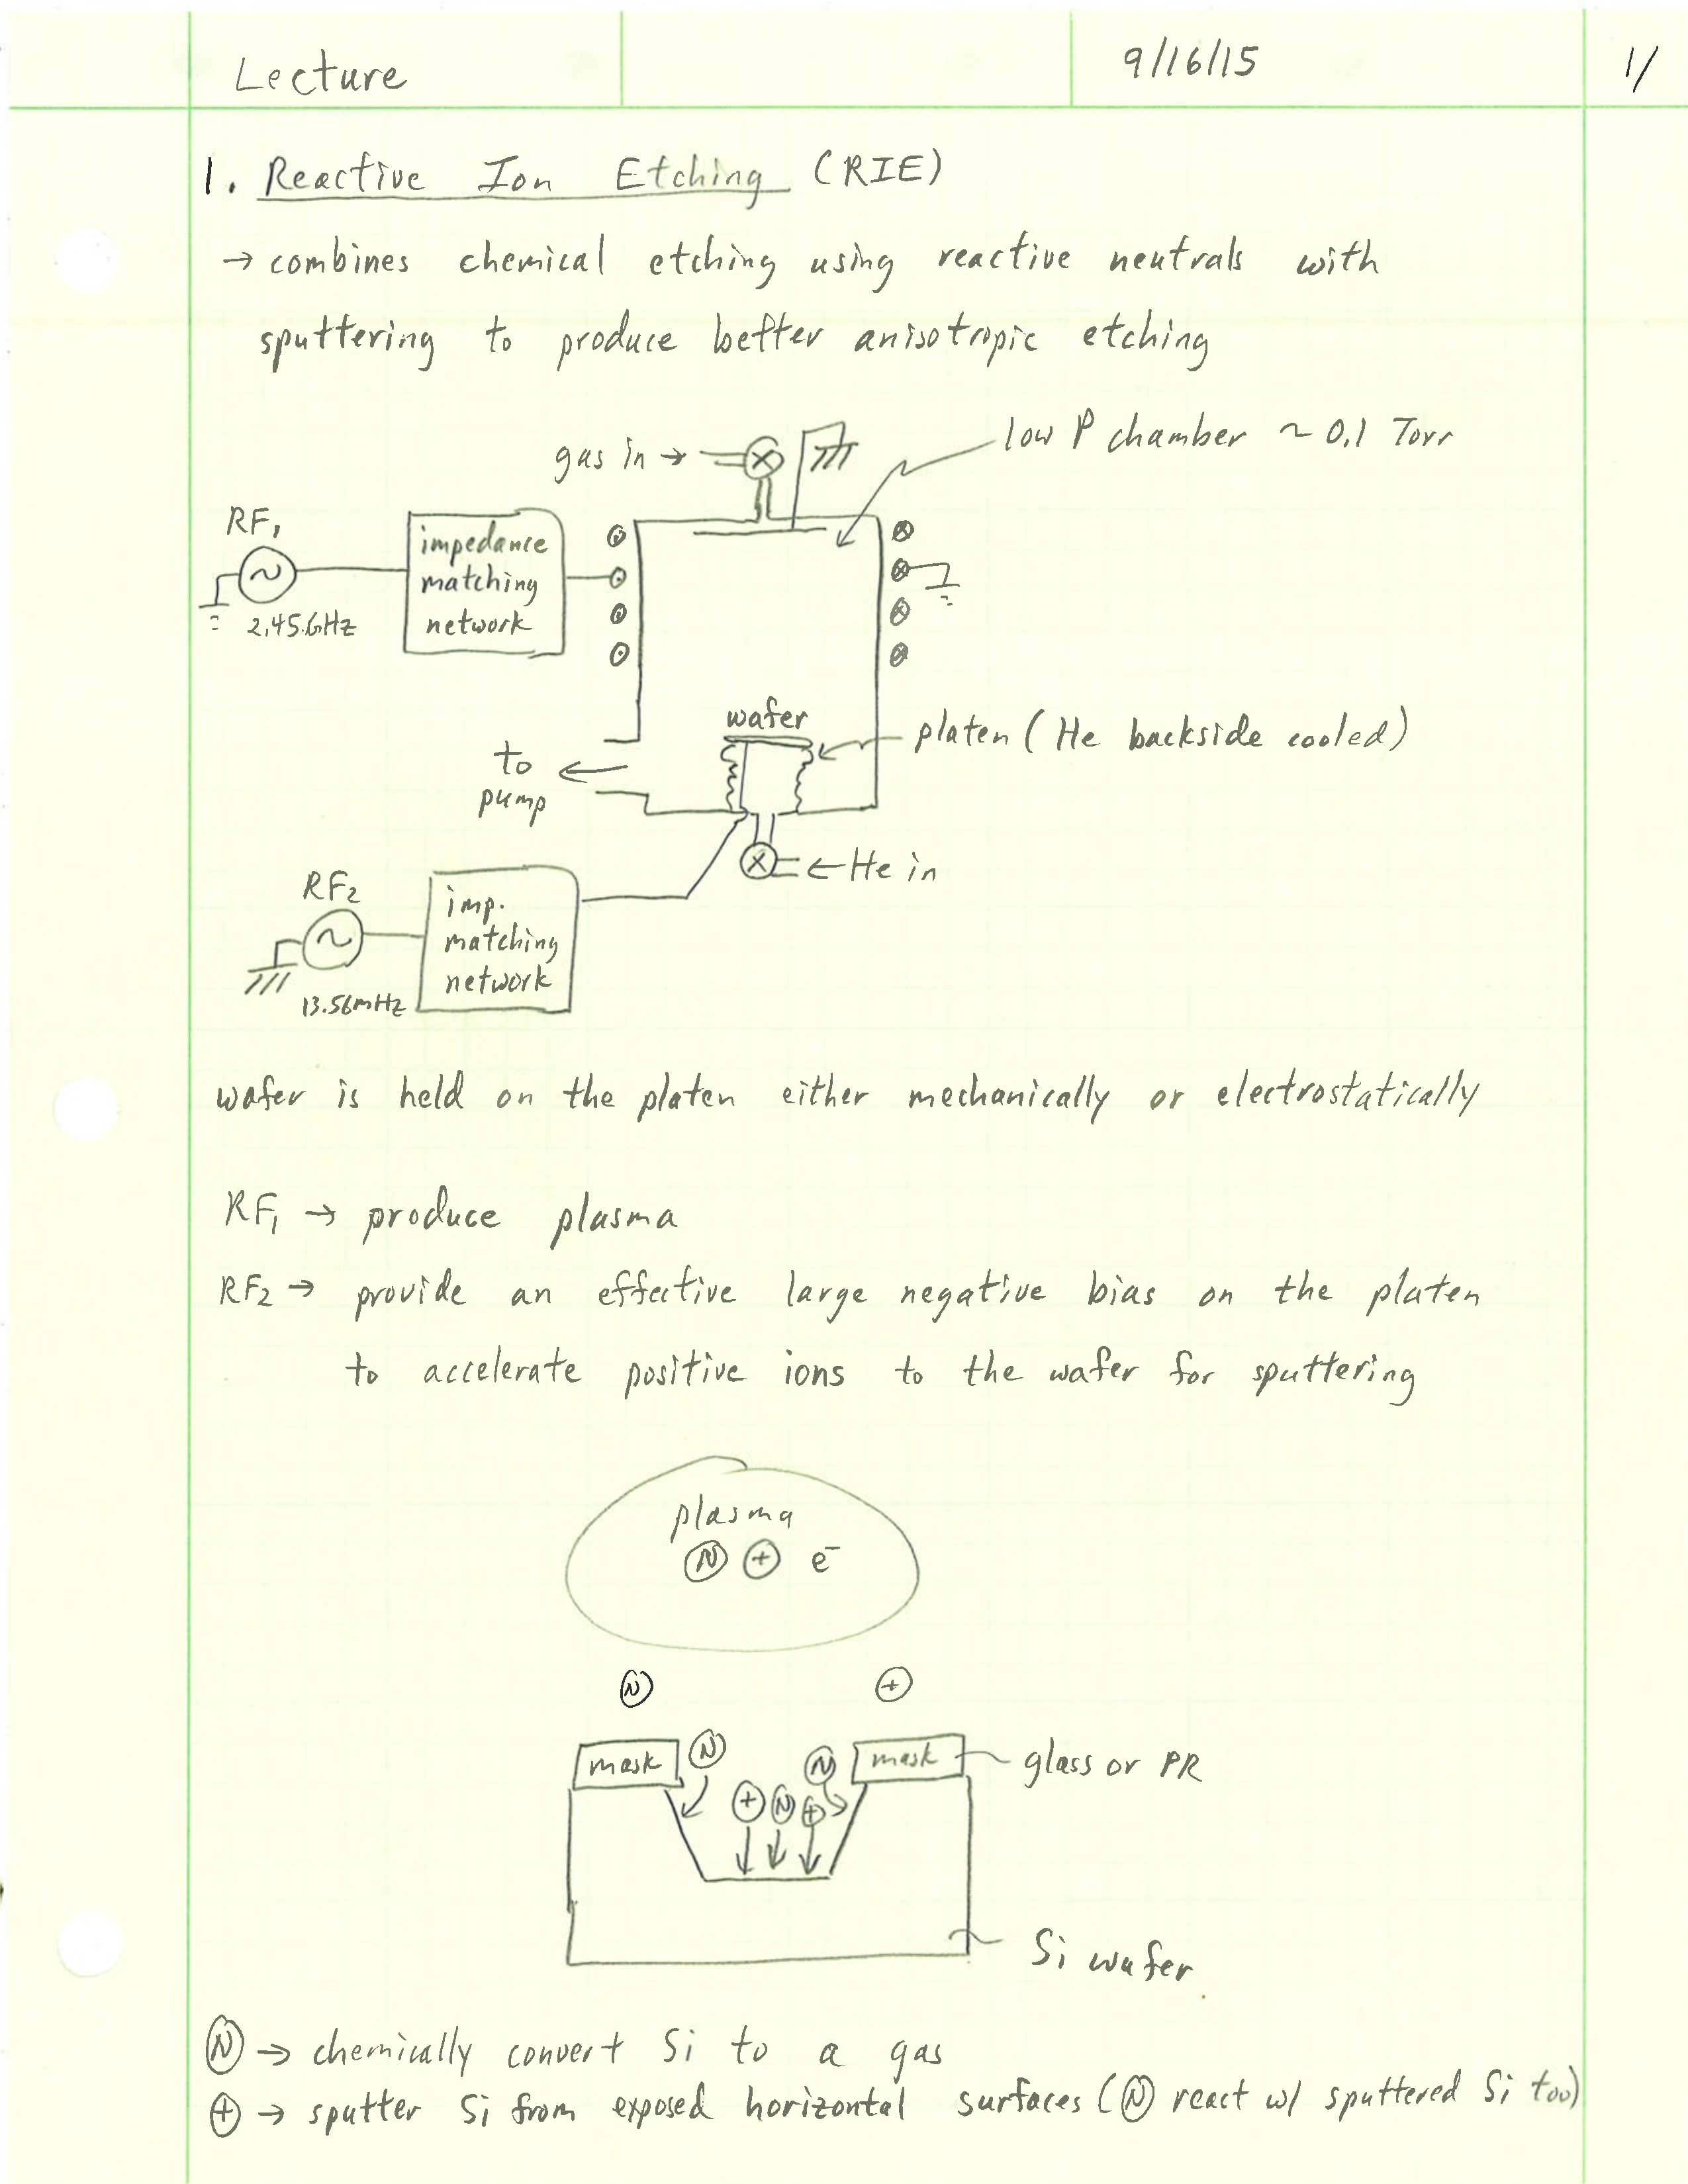 Lecture 9/16/15 1/
1. Reactive Ion Etching (RIE)
→ combines chemical etching using reactive neutrals with
sputtering to produce better anisotropic etching
gas in →
low P chamber ~ 0.1 Torr
RF₁
2.45GHz
impedance
matching
network
wafer
platen (He backside cooled)
to
pump
← He in
RF₂
13.56mHz
imp.
matching
network
wafer is held on the platen either mechanically or electrostatically
RF₁ → produce plasma
RF₂ → provide an effective large negative bias on the platen
to accelerate positive ions to the wafer for sputtering
plasma
Ⓝ ⊕ e⁻
Ⓝ ⊕
mask Ⓝ Ⓝ mask
glass or PR
⊕ Ⓝ ⊕
Si wafer
Ⓝ → chemically convert Si to a gas
⊕ → sputter Si from exposed horizontal surfaces (Ⓝ react w/ sputtered Si too)